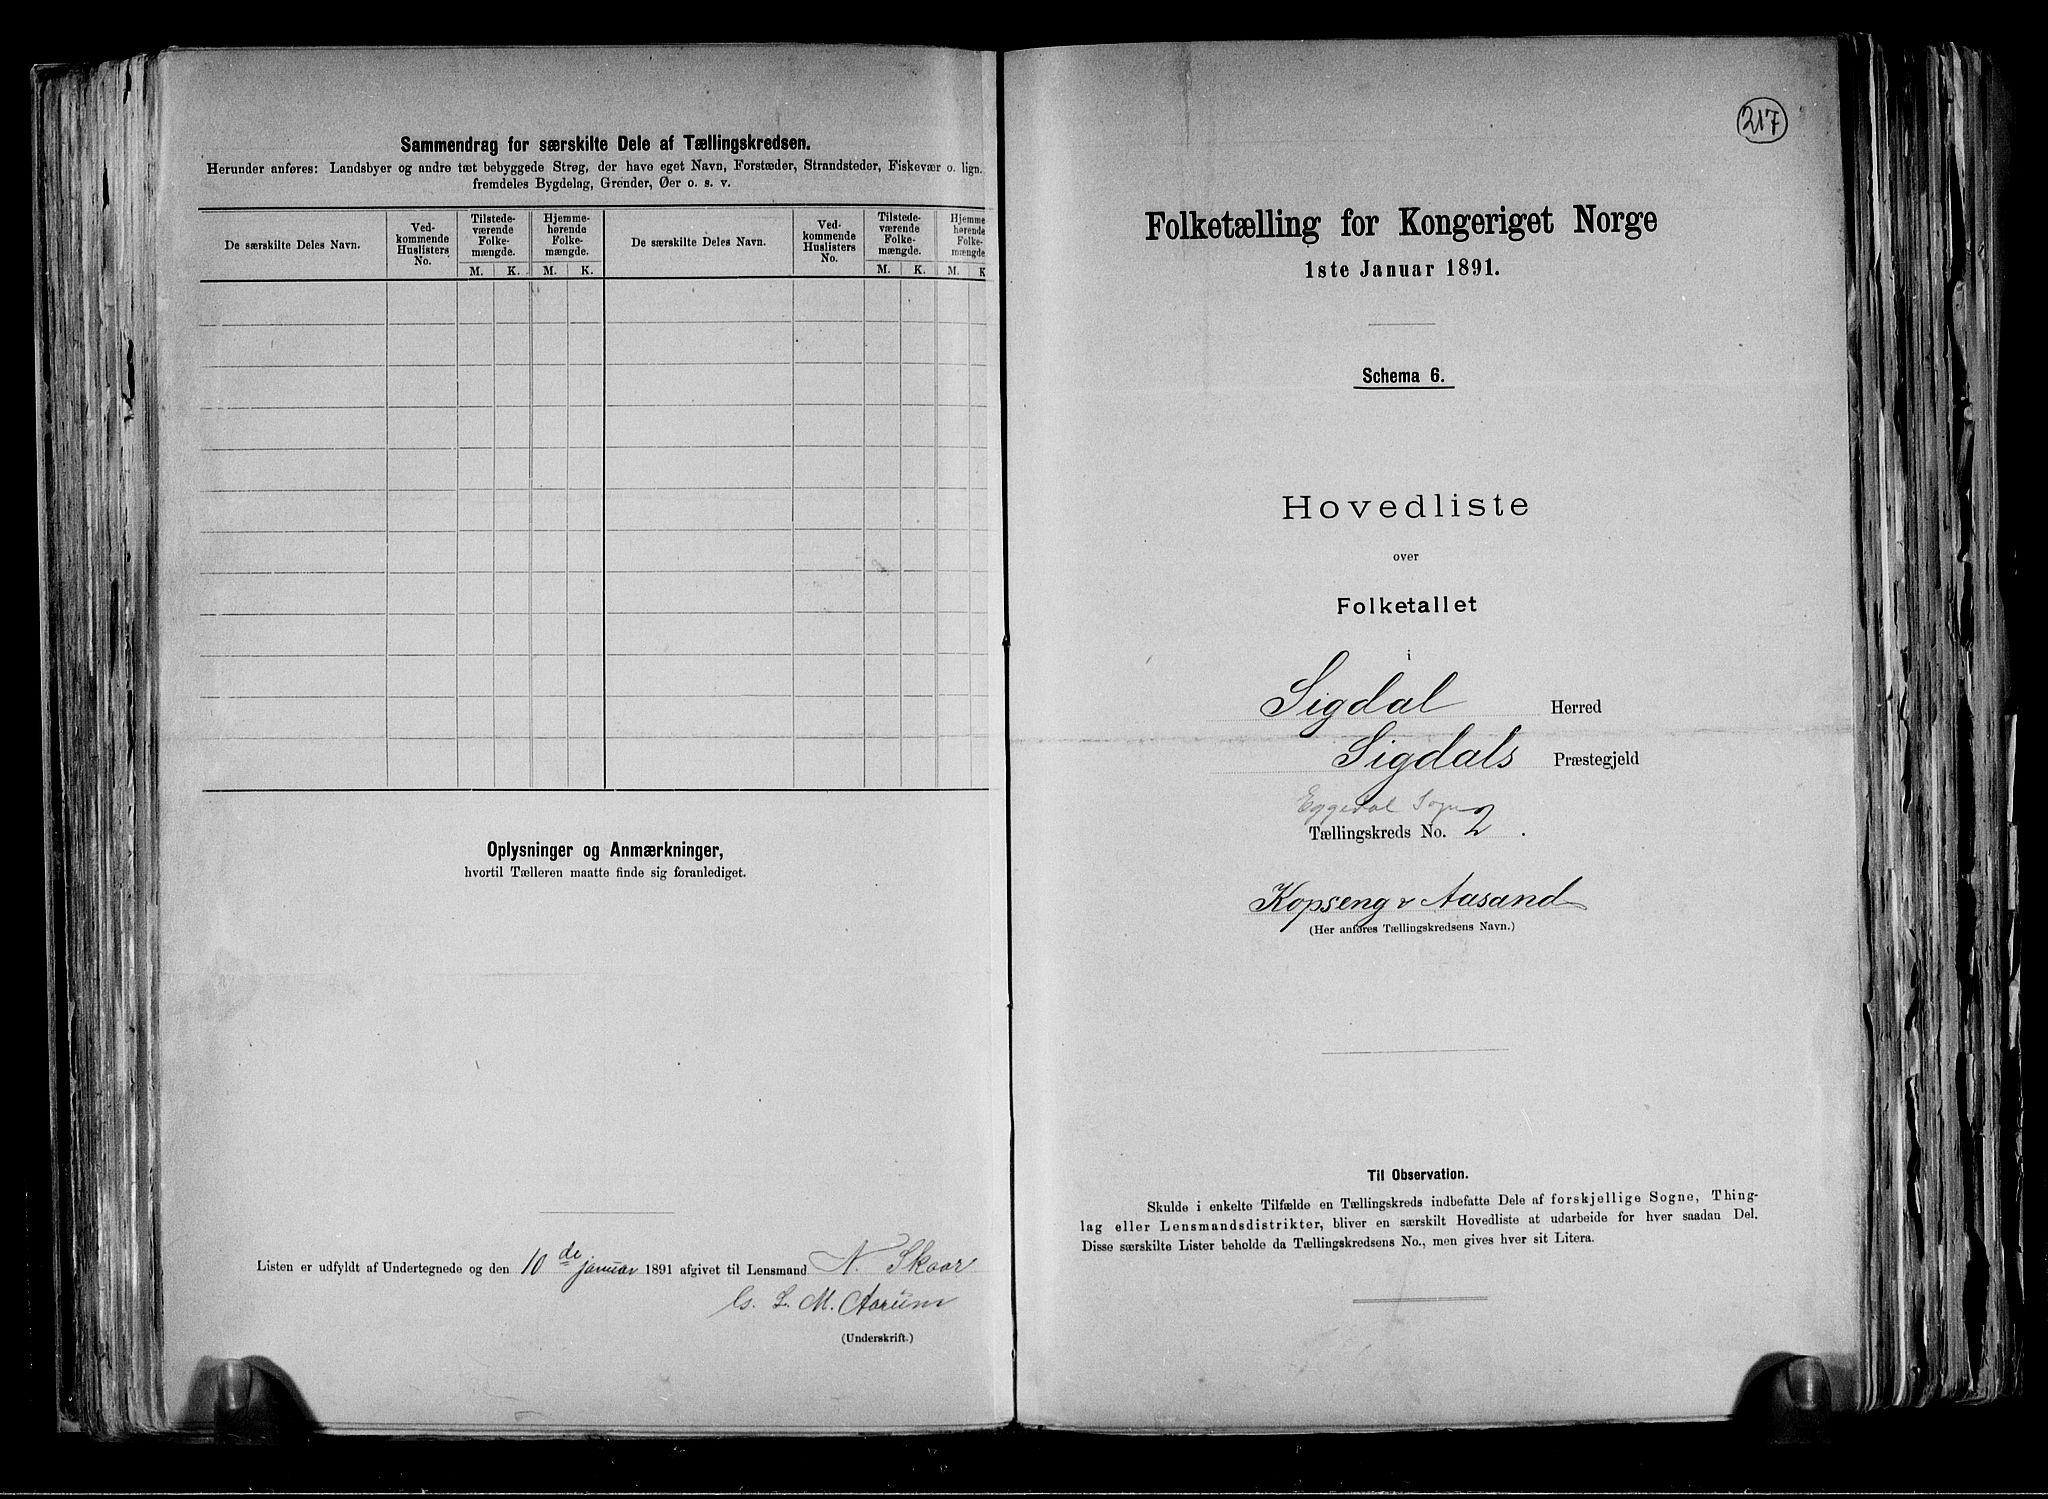 Sammendrag for særskilte Dele af Tællingskredsen.
Herunder anføres: Landsbyer og andre tæt bebyggede Strøg, der have eget Navn, Forstæder, Strandsteder, Fiskevær o. lign.
fremdeles Bygdelag, Grender, Øer o. s. v.
De særskilte Deles Navn. Ved-kommende Huslisters No. Tilstede-værende Folke-mængde. Hjemme-hørende Folke-mængde. De særskilte Deles Navn. Ved-kommende Huslisters No. Tilstede-værende Folke-mængde. Hjemme-hørende Folke-mængde
M. K. M. K. M. K. M. K
Oplysninger og Anmærkninger,
hvortil Tælleren maatte finde sig foranlediget.
Listen er udfyldt af Undertegnede og den 10de januar 1891 afgivet til Lensmand N. Skaar
L. M. Aarum
(Underskrift.)
217
Folketælling for Kongeriget Norge
1ste Januar 1891.
Schema 6.
Hovedliste
over
Folketallet
i
Sigdal Herred
Sigdals Præstegjeld
Eggedal Sogn
Tællingskreds No. 2.
Kopseng v Aasand
(Her anføres Tællingskredsens Navn.)
Til Observation.
Skulde i enkelte Tilfælde en Tællingskreds indbefatte Dele af forskjellige Sogne, Thing-
lag eller Lensmandsdistrikter, bliver en særskilt Hovedliste at udarbeide for hver saadan Del.
Disse særskilte Lister beholde da Tællingskredsens No., men gives hver sit Litera.